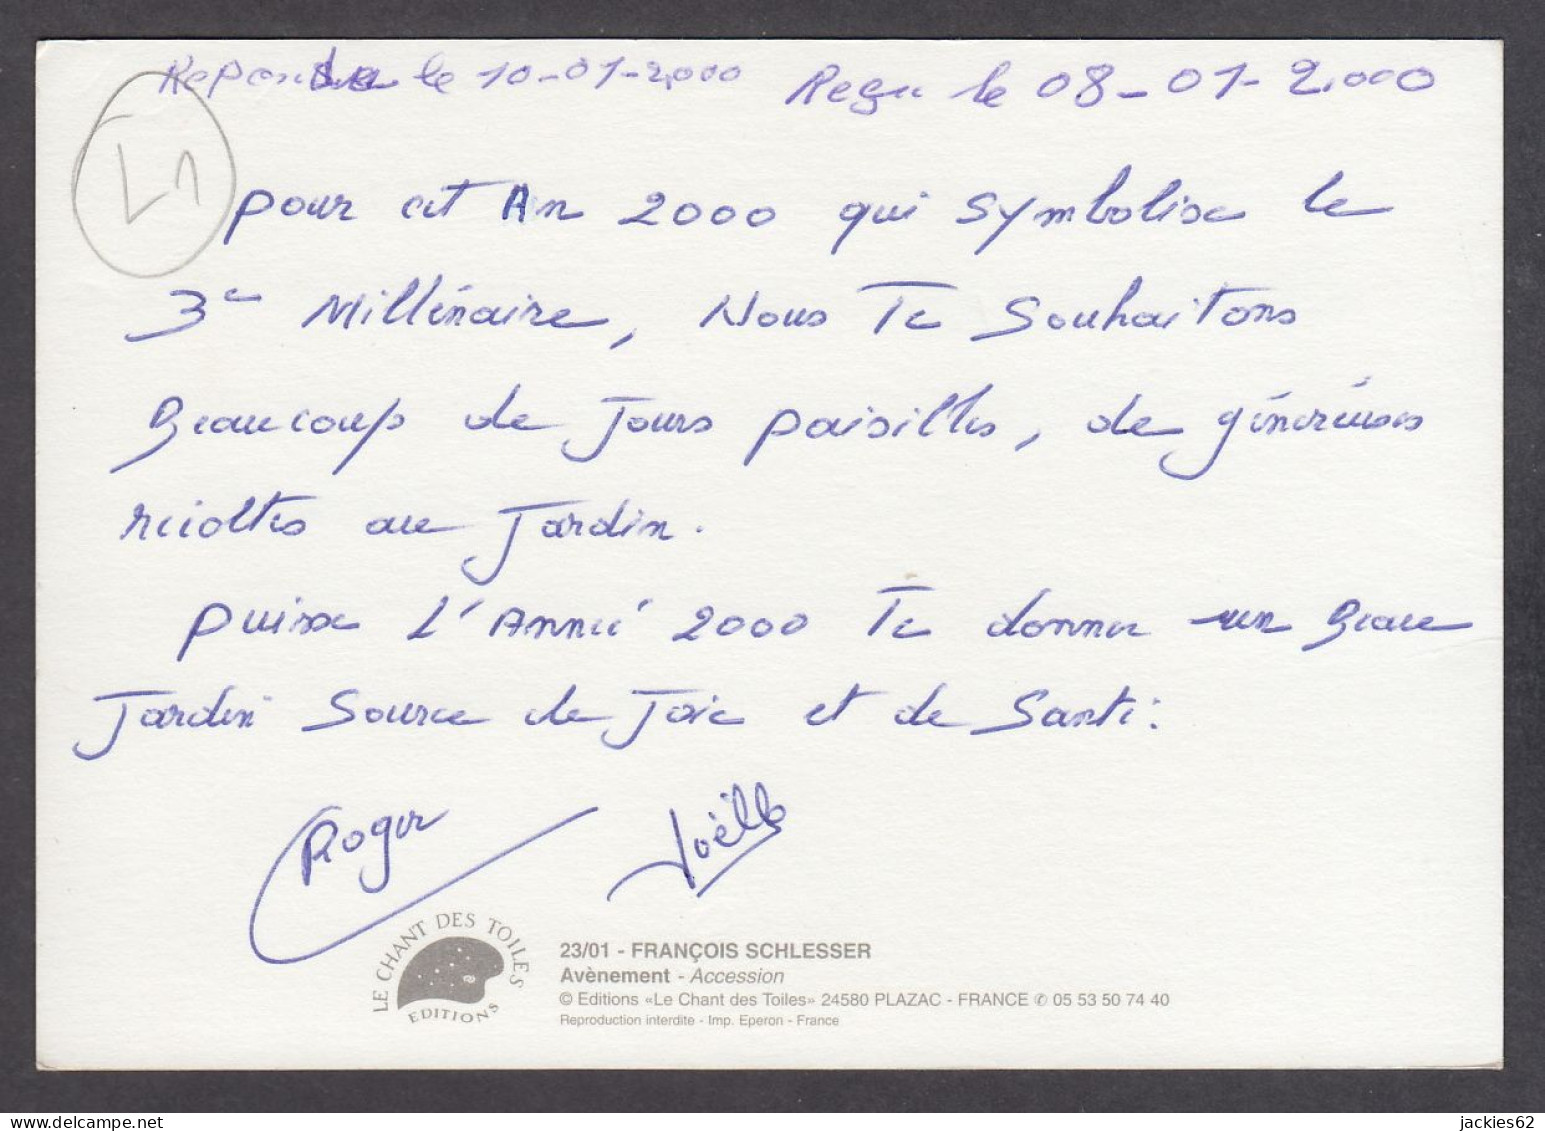 Repondu le 10-01-2.000 Reçu le 08-01-2.000
L1
pour cet An 2000 qui symbolise le
3e Millénaire, Nous Te Souhaitons
Beaucoup de Jours paisibles, de généreuses
récoltes au Jardin.
puisse L'Année 2000 Te donner un Beau
Jardin Source de Joie et de Santé.
Roger Joëlle
LE CHANT DES TOILES
EDITIONS
23/01 - FRANÇOIS SCHLESSER
Avènement - Accession
© Editions «Le Chant des Toiles» 24580 PLAZAC - FRANCE ✆ 05 53 50 74 40
Reproduction interdite - Imp. Eperon - France
jackies62